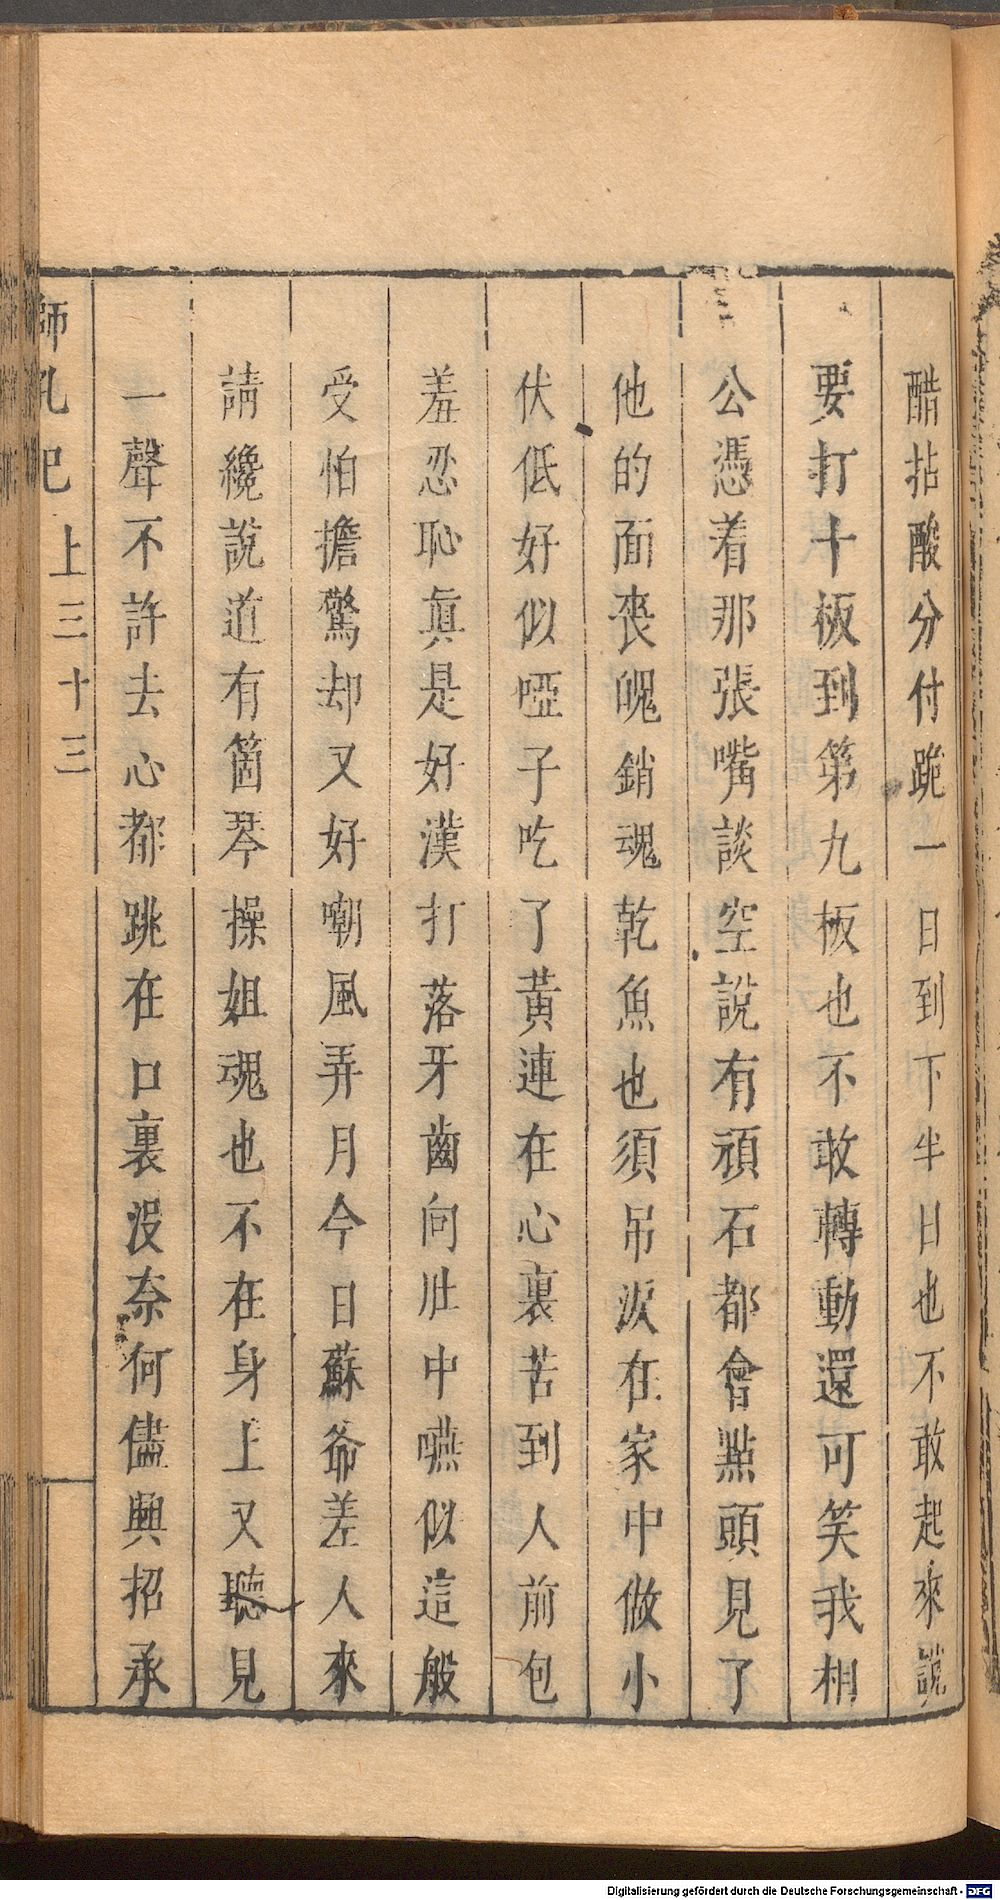 酷拈酸分付跪一日到下半日也不敢起來說
要打十板到第九板也不敢轉動還可笑我相
公憑着那張嘴談空說有頑石都會點頭見了
他的面喪魄銷魂乾魚也須吊淚在家中做小
伏低好似啞子吃了黃連在心裏苦到人前包
羞忍恥真是好漢打落牙齒向肚中嚥似這般
受怕擔驚却又好嘲風弄月今日蘇爺差人來
請纔說道有箇琴操姐魂也不在身上又聽見
一聲不許去心都跳在口裏沒奈何儘興招承
師孔巴
上三十三
Digitalisierung gefördert durch die Deutsche Forschungsgemeinschaft - DFG